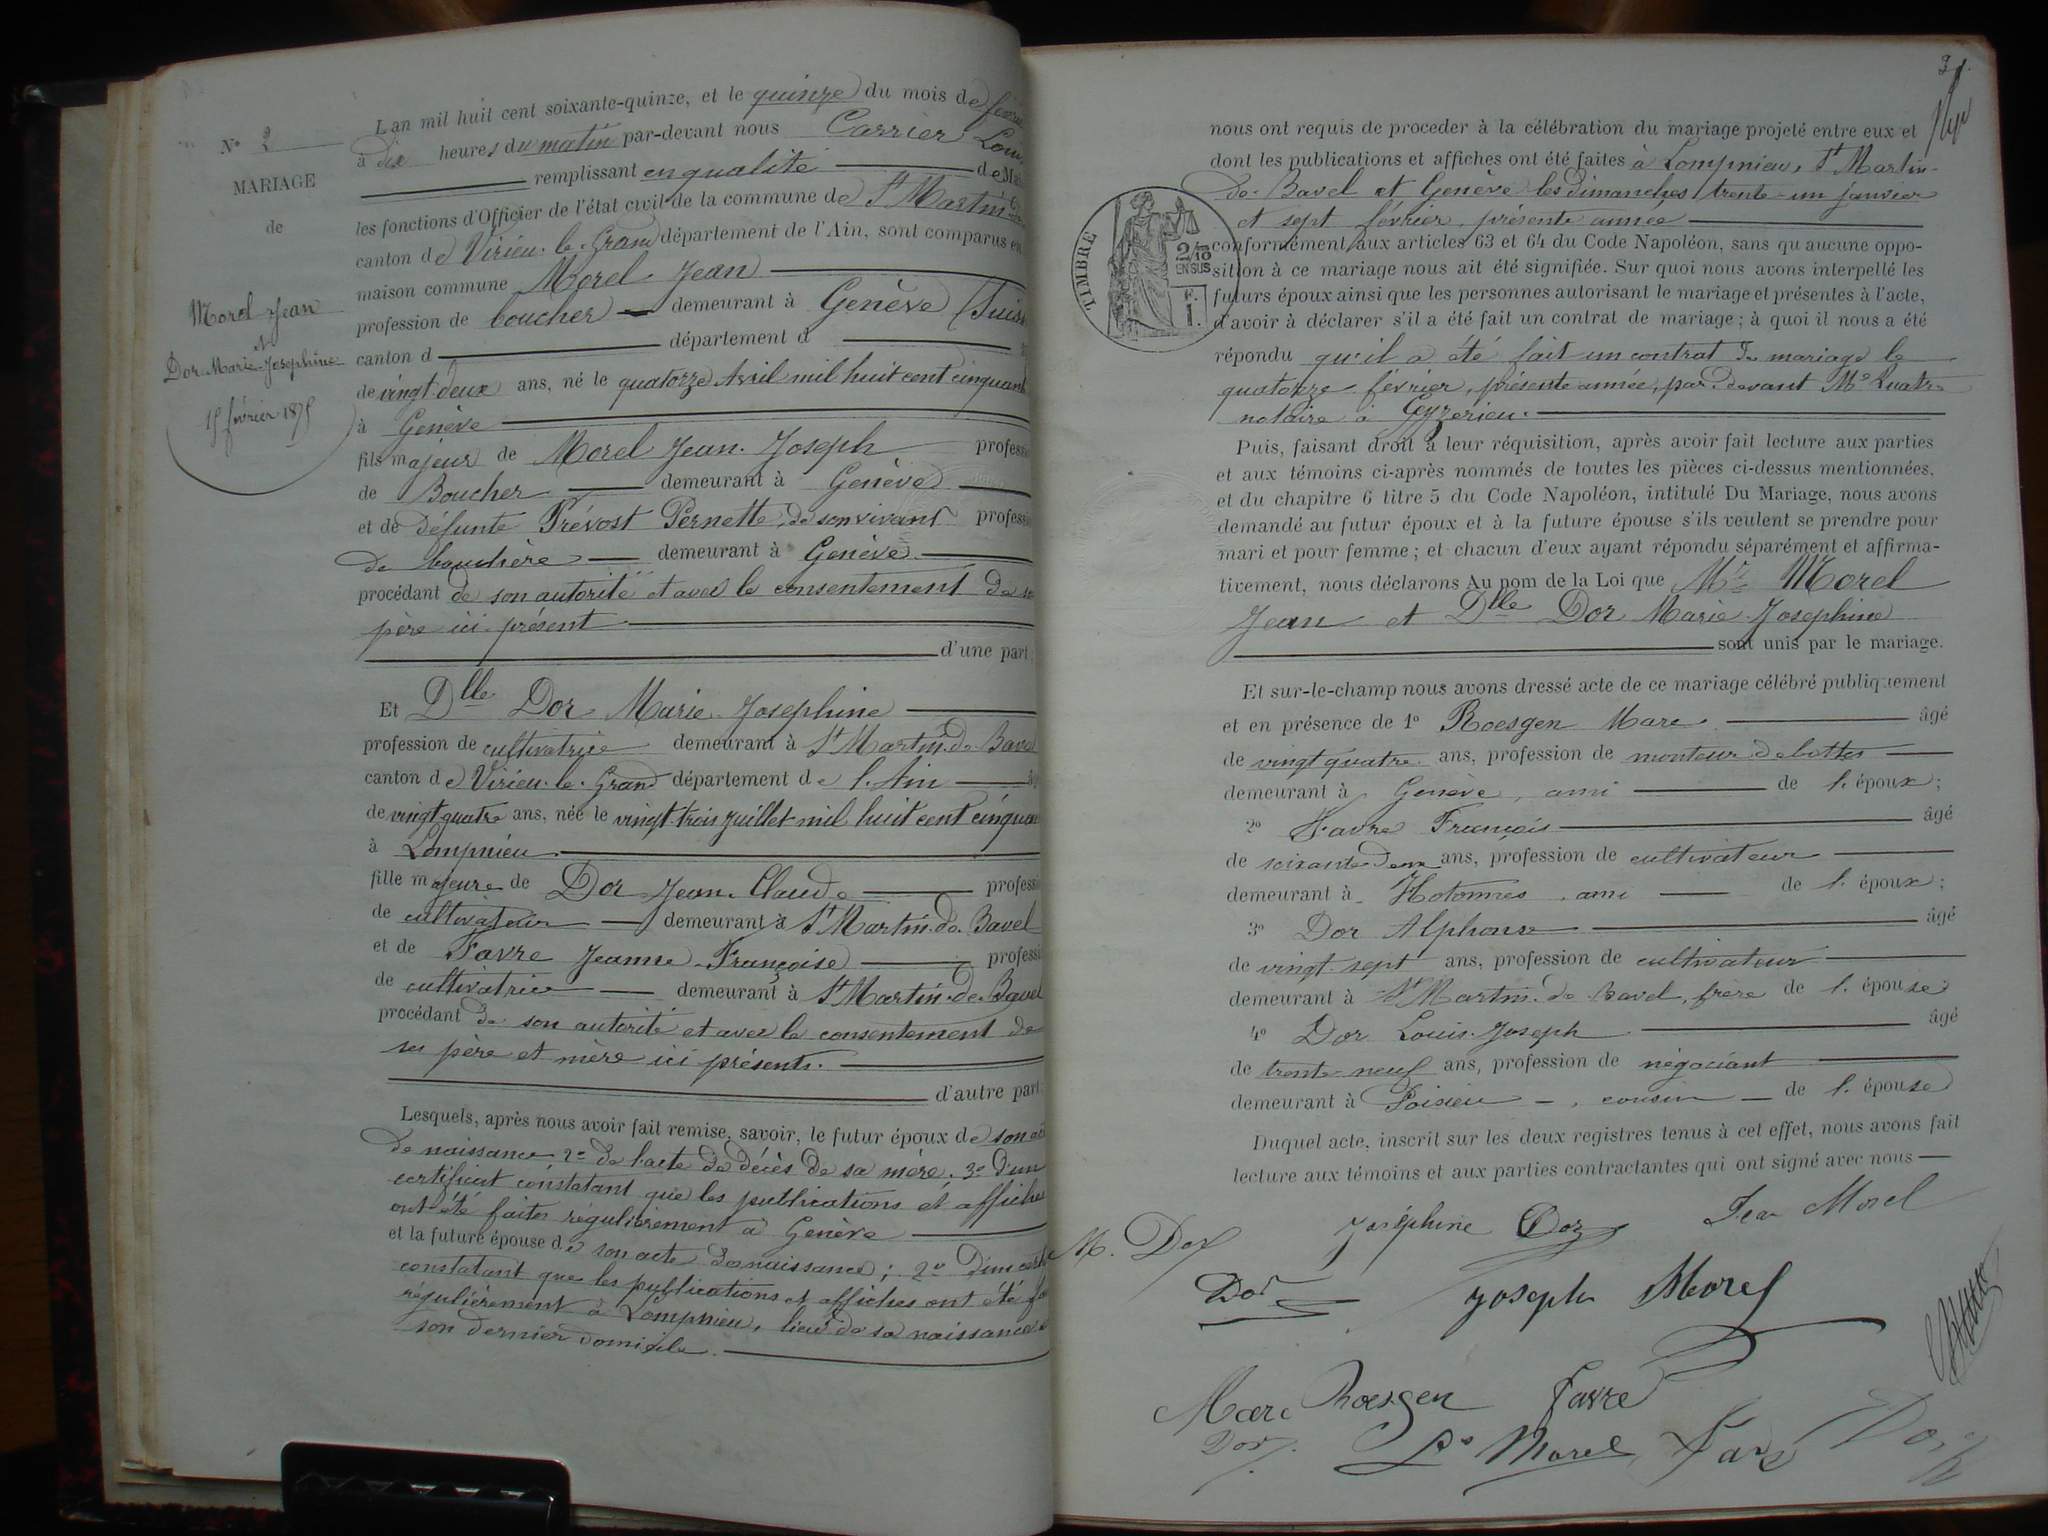 N° 2
MARIAGE
de
Morel Jean
&
Dor Marie-Josephine
15 février 1875
L'an mil huit cent soixante-quinze, et le quinze du mois de
à dix heures du matin par-devant nous Carrier Louis
remplissant en qualité de
les fonctions d'Officier de l'état civil de la commune de St Martin
canton de Virieu-le-Grand département de l'Ain, sont comparus en
maison commune Morel Jean
profession de boucher demeurant à Genève (Suisse
canton d département d
de vingt deux ans, né le quatorze Avril mil huit cent cinquante
à Genève
fils majeur de Morel Jean-Joseph professi
de Boucher demeurant à Genève
et de défunte Prévost Pernette, de son vivant professi
de bouchère demeurant à Genève
procédant de son autorité et avec le consentement de
père ici présent
d'une part,
Et Dlle Dor Marie-Josephine
profession de cultivatrice demeurant à St Martin-de-Bavel
canton de Virieu-le-Grand département de l'Ain
de vingt quatre ans, née le vingt trois juillet mil huit cent cinquante
à Lompnieu
fille majeure de Dor Jean-Claude professi
de cultivateur demeurant à St Martin-de-Bavel
et de Favre Jeanne-Françoise professi
de cultivatrice demeurant à St Martin-de-Bavel
procédant de son autorité et avec le consentement de
ses père et mère ici présents.
d'autre part
Lesquels, après nous avoir fait remise, savoir, le futur époux de son
de naissance 2° de l'acte de décès de sa mère. 3° d'un
certificat constatant que les publications et affiches
ont été faites régulièrement à Genève
et la future épouse de son acte de naissance; 2° d'un
constatant que les publications et affiches ont été
régulièrement à Lompnieu, lieu de sa naissance
son dernier domicile.
3
TIMBRE
2/10
EN SUS
F.
1.
nous ont requis de proceder à la célébration du mariage projeté entre eux et
dont les publications et affiches ont été faites à Lompnieu, St Martin-
de-Bavel et Genève les dimanches trente-un janvier
et sept février, présente année
conformément aux articles 63 et 64 du Code Napoléon, sans qu'aucune oppo-
sition à ce mariage nous ait été signifiée. Sur quoi nous avons interpellé les
futurs époux ainsi que les personnes autorisant le mariage et présentes à l'acte,
d'avoir à déclarer s'il a été fait un contrat de mariage; à quoi il nous a été
répondu qu'il a été fait un contrat de mariage le
quatorze février, présente année, par devant Me
notaire à Ceyzerieu.
Puis, faisant droit à leur réquisition, après avoir fait lecture aux parties
et aux témoins ci-après nommés de toutes les pièces ci-dessus mentionnées,
et du chapitre 6 titre 5 du Code Napoléon, intitulé Du Mariage, nous avons
demandé au futur époux et à la future épouse s'ils veulent se prendre pour
mari et pour femme; et chacun d'eux ayant répondu séparément et affirma-
tivement, nous déclarons Au nom de la Loi que Mr Morel
Jean et Dlle Dor Marie Josephine
sont unis par le mariage.
Et sur-le-champ nous avons dressé acte de ce mariage célébré publiquement
et en présence de 1° Roesgen Marc âgé
de vingt quatre ans, profession de monteur de boîtes
demeurant à Genève, ami de l'époux;
2° Favre François âgé
de soixante-deux ans, profession de cultivateur
demeurant à Hotonnes, ami de l'époux;
3° Dor Alphonse âgé
de vingt-sept ans, profession de cultivateur
demeurant à St Martin-de-Bavel, frère de l'épouse;
4° Dor Louis-Joseph âgé
de trente-neuf ans, profession de négociant
demeurant à Poisieu, cousin de l'épouse
Duquel acte, inscrit sur les deux registres tenus à cet effet, nous avons fait
lecture aux témoins et aux parties contractantes qui ont signé avec nous
M. Dor Joséphine Dor Jean Morel
Dor Joseph Morel
Marc Roesgen Favre
Dor Morel